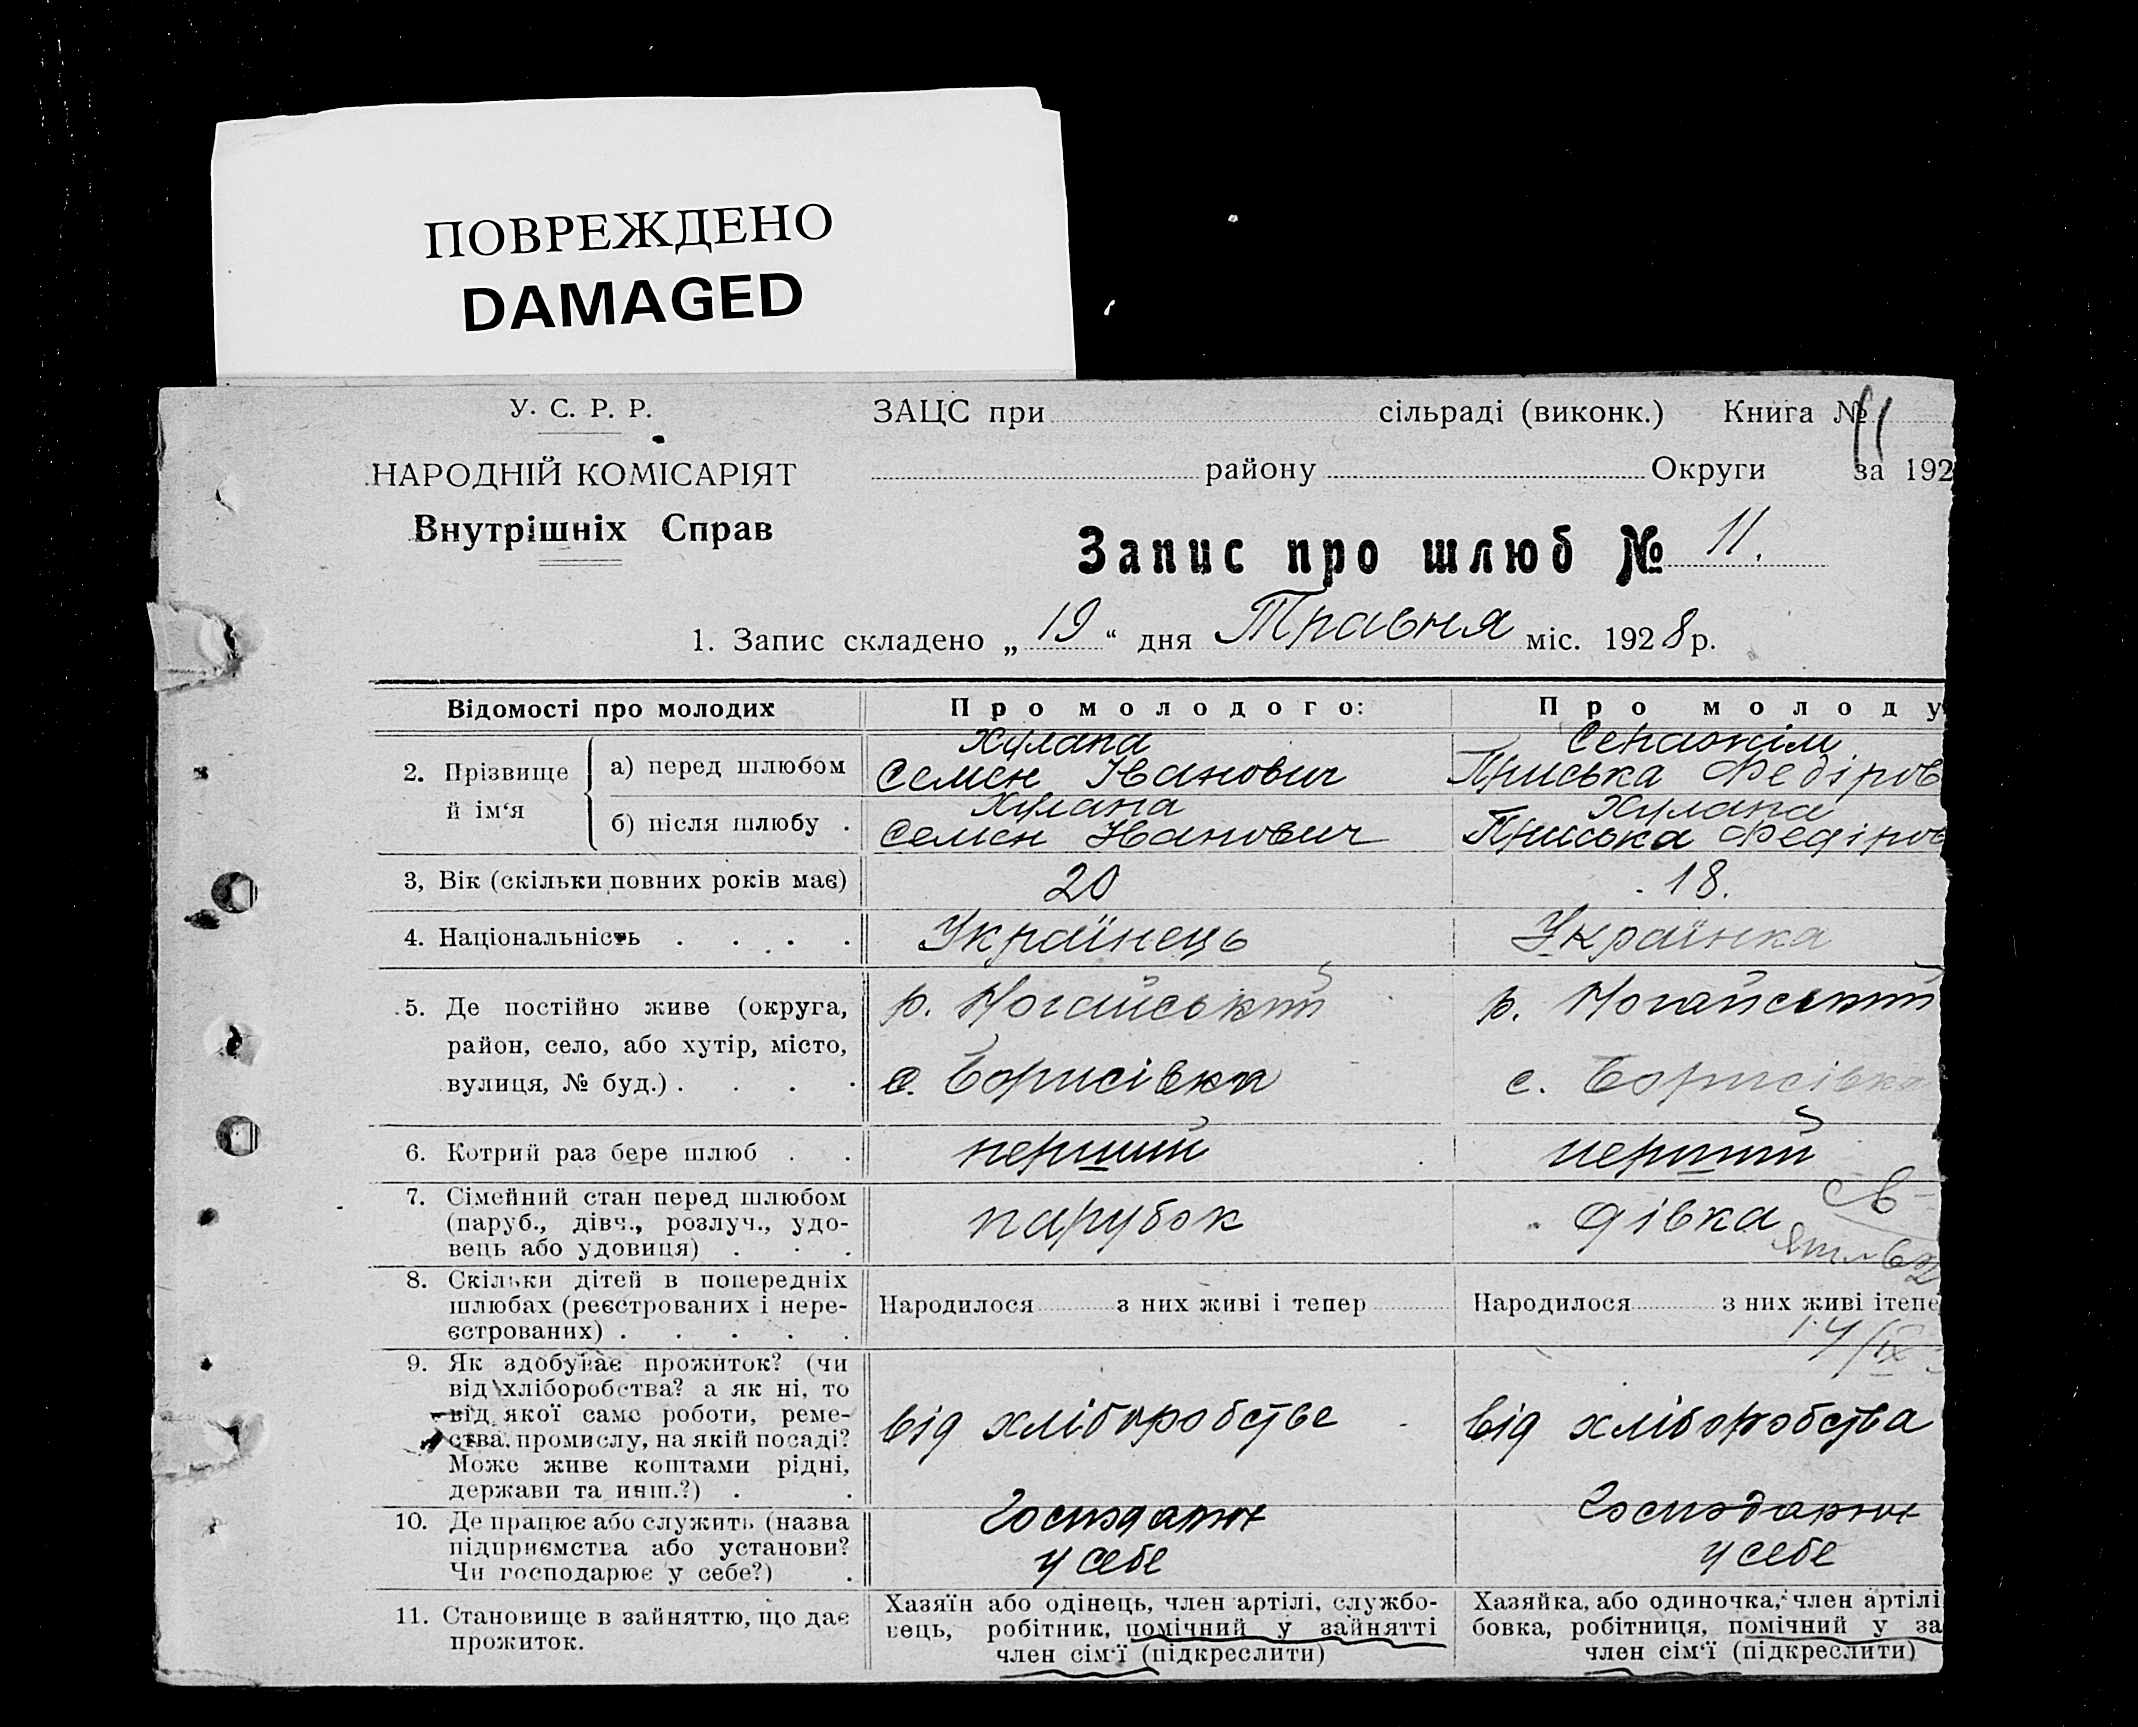 ПОВРЕЖДЕНО
DAMAGED
У. С. Р. Р.
НАРОДНІЙ КОМІСАРІЯТ
Внутрішніх Справ
ЗАЦС при сільраді (виконк.) Книга № 11
району Округи за 192
Запис про шлюб № 11.
1. Запис складено „ 19 “ дня Травня міс. 1928 р.
Відомості про молодих
Про молодого:
Про молоду
2. Прізвище й ім‘я
а) перед шлюбом
Хулапа
Семен Іванович
Приська Федіров
б) після шлюбу .
Хулапа
Семен Іванович
Хулапа
Приська Федіров
3, Вік (скільки повних років має)
20
18.
4. Національність . . . .
Українець
Українка
5. Де постійно живе (округа,
район, село, або хутір, місто,
вулиця, № буд.) . . . .
р. Ногайський
с. Борисівка
р. Ногайський
с. Борисівка
6. Котрий раз бере шлюб . .
перший
перший
7. Сімейний стан перед шлюбом
(паруб., дівч., розлуч., удо-
вець або удовиця) . . .
парубок
дівка
8. Скільки дітей в попередніх
шлюбах (реєстрованих і нере-
єстрованих) . . . . .
Народилося з них живі і тепер
Народилося з них живі ітепе
14/IX
9. Як здобуває прожиток? (чи
від хліборобства? а як ні, то
від якої саме роботи, реме-
ства, промислу, на якій посаді?
Може живе коштами рідні,
держави та инш.?) . .
від хліборобства
від хліборобства
10. Де працює або служить (назва
підприємства або установи?
Чи господарює у себе?) .
Господарює
у себе
Господарює
у себе
11. Становище в зайняттю, що дає
прожиток.
Хазяїн або одінець, член артілі, службо-
вець, робітник, помічний у зайнятті
член сім‘ї (підкреслити)
Хазяйка, або одиночка, член артілі
бовка, робітниця, помічний у за
член сім‘ї (підкреслити)